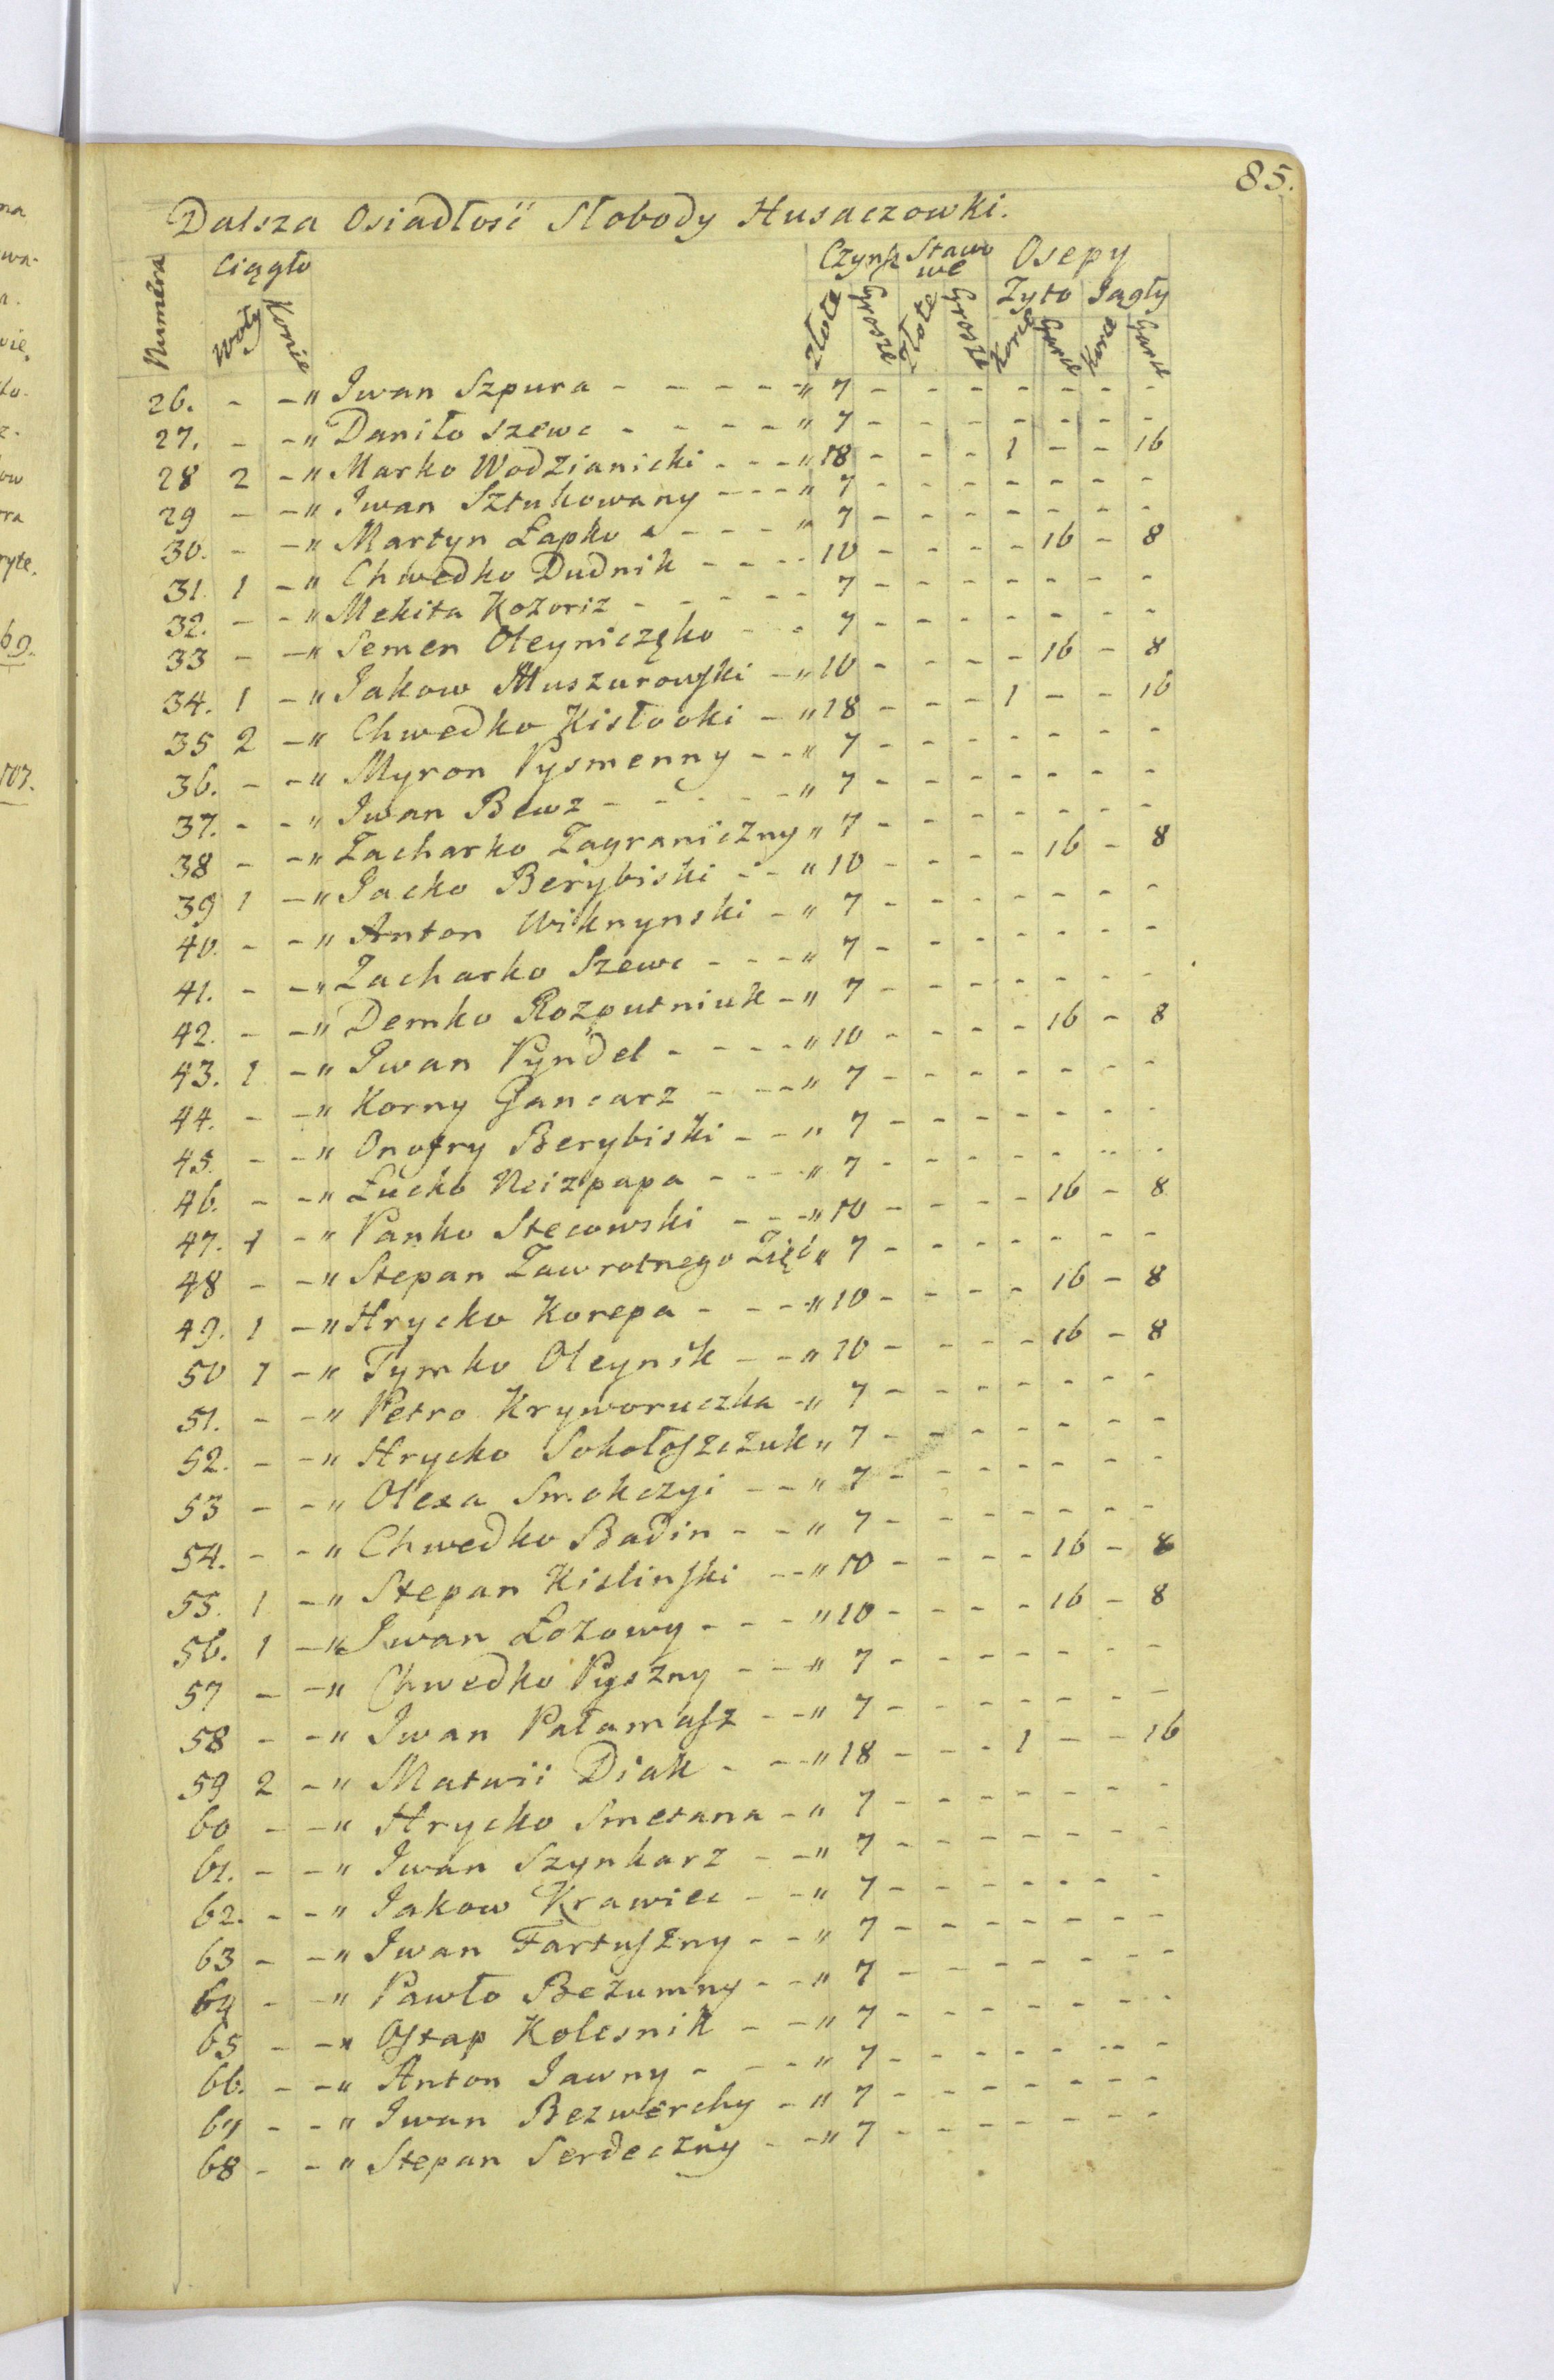 85.
Dalsza Osiadłość Słobody Husaczowki.
Numera Ciągło Woły Konie Czynsz Złote Grosze Stawowe Złote Grosze Osepy Żyto Korce Garce Jagły Korce Garce
26. - - " Iwan Szpura - - - - - " 7 - - - - - - -
27. - - " Daniło Szewc - - - - " 7 - - - - - - -
28 2 - " Marko Wodzianicki - - - " 18 - - - 1 - - 16
29 - - " Iwan Sztukowany - - - " 7 - - - - - - -
30. - - " Martyn Łapko - - - - " 7 - - - - - - -
31. 1 - " Chwedko Dudnik - - - - 10 - - - - 16 - 8
32. - - " Mekita Kozoriz - - - - - 7 - - - - - - -
33 - - " Semen Oleyniczęko - - 7 - - - - - - -
34. 1 - " Jakow Muszurowski - " 10 - - - - 16 - 8
35 2 - " Chwedko Kisłooki - " 18 - - - 1 - - 16
36. - - " Myron Pysmenny - - " 7 - - - - - - -
37. - - " Iwan Bewz - - - - - " 7 - - - - - - -
38 - - " Zacharko Zagraniczny " 7 - - - - - - -
39 1 - " Jacko Berybiski - - " 10 - - - - 16 - 8
40. - - " Anton Wiknynski - " 7 - - - - - - -
41. - - " Zacharko Szewc - - - " 7 - - - - - - -
42. - - " Demko Rozputniuk - " 7 - - - - - - -
43. 1 - " Iwan Pyndel - - - - " 10 - - - - 16 - 8
44. - - " Korny Gancarz - - - " 7 - - - - - - -
45. - - " Onofry Berybiski - - " 7 - - - - - - -
46. - - " Łucko Neizpapa - - - " 7 - - - - - - -
47. 1 - " Panko Stecowski - - - " 10 - - - - 16 - 8
48 - - " Stepan Zawrotnego Zięć " 7 - - - - - - -
49. 1 - " Hrycko Korepa - - - " 10 - - - - 16 - 8
50 1 - " Tymko Oleynik - - " 10 - - - - 16 - 8
51. - - " Petro Kryworuczka - " 7 - - - - - - -
52. - - " Hrycko Sokołoszczuk " 7 - - - - - - -
53 - - " Olexa Smokczyi - - " 7 - - - - - - -
54. - - " Chwedko Badin - - " 7 - - - - - - -
55. 1 - " Stepan Kislinski - - " 10 - - - - 16 - 8
56. 1 - " Iwan Łozowy - - - " 10 - - - - 16 - 8
57 - - " Chwedko Pyszny - - " 7 - - - - - - -
58 - - " Iwan Pałamasz - - " 7 - - - - - - -
59 2 - " Matwii Diak - - - " 18 - - - 1 - - 16
60 - - " Hrycko Smetana - " 7 - - - - - - -
61. - - " Iwan Szynkarz - - " 7 - - - - - - -
62. - - " Jakow Krawiec - - " 7 - - - - - - -
63 - - " Iwan Fartuszny - - " 7 - - - - - - -
64 - - " Pawło Bezumny - - " 7 - - - - - - -
65 - - " Ostap Kolesnik - - " 7 - - - - - - -
66. - - " Anton Jawny - - - " 7 - - - - - - -
67 - - " Iwan Bezwerchy - " 7 - - - - - - -
68 - - " Stepan Serdeczny - - " 7 - - - - - - -